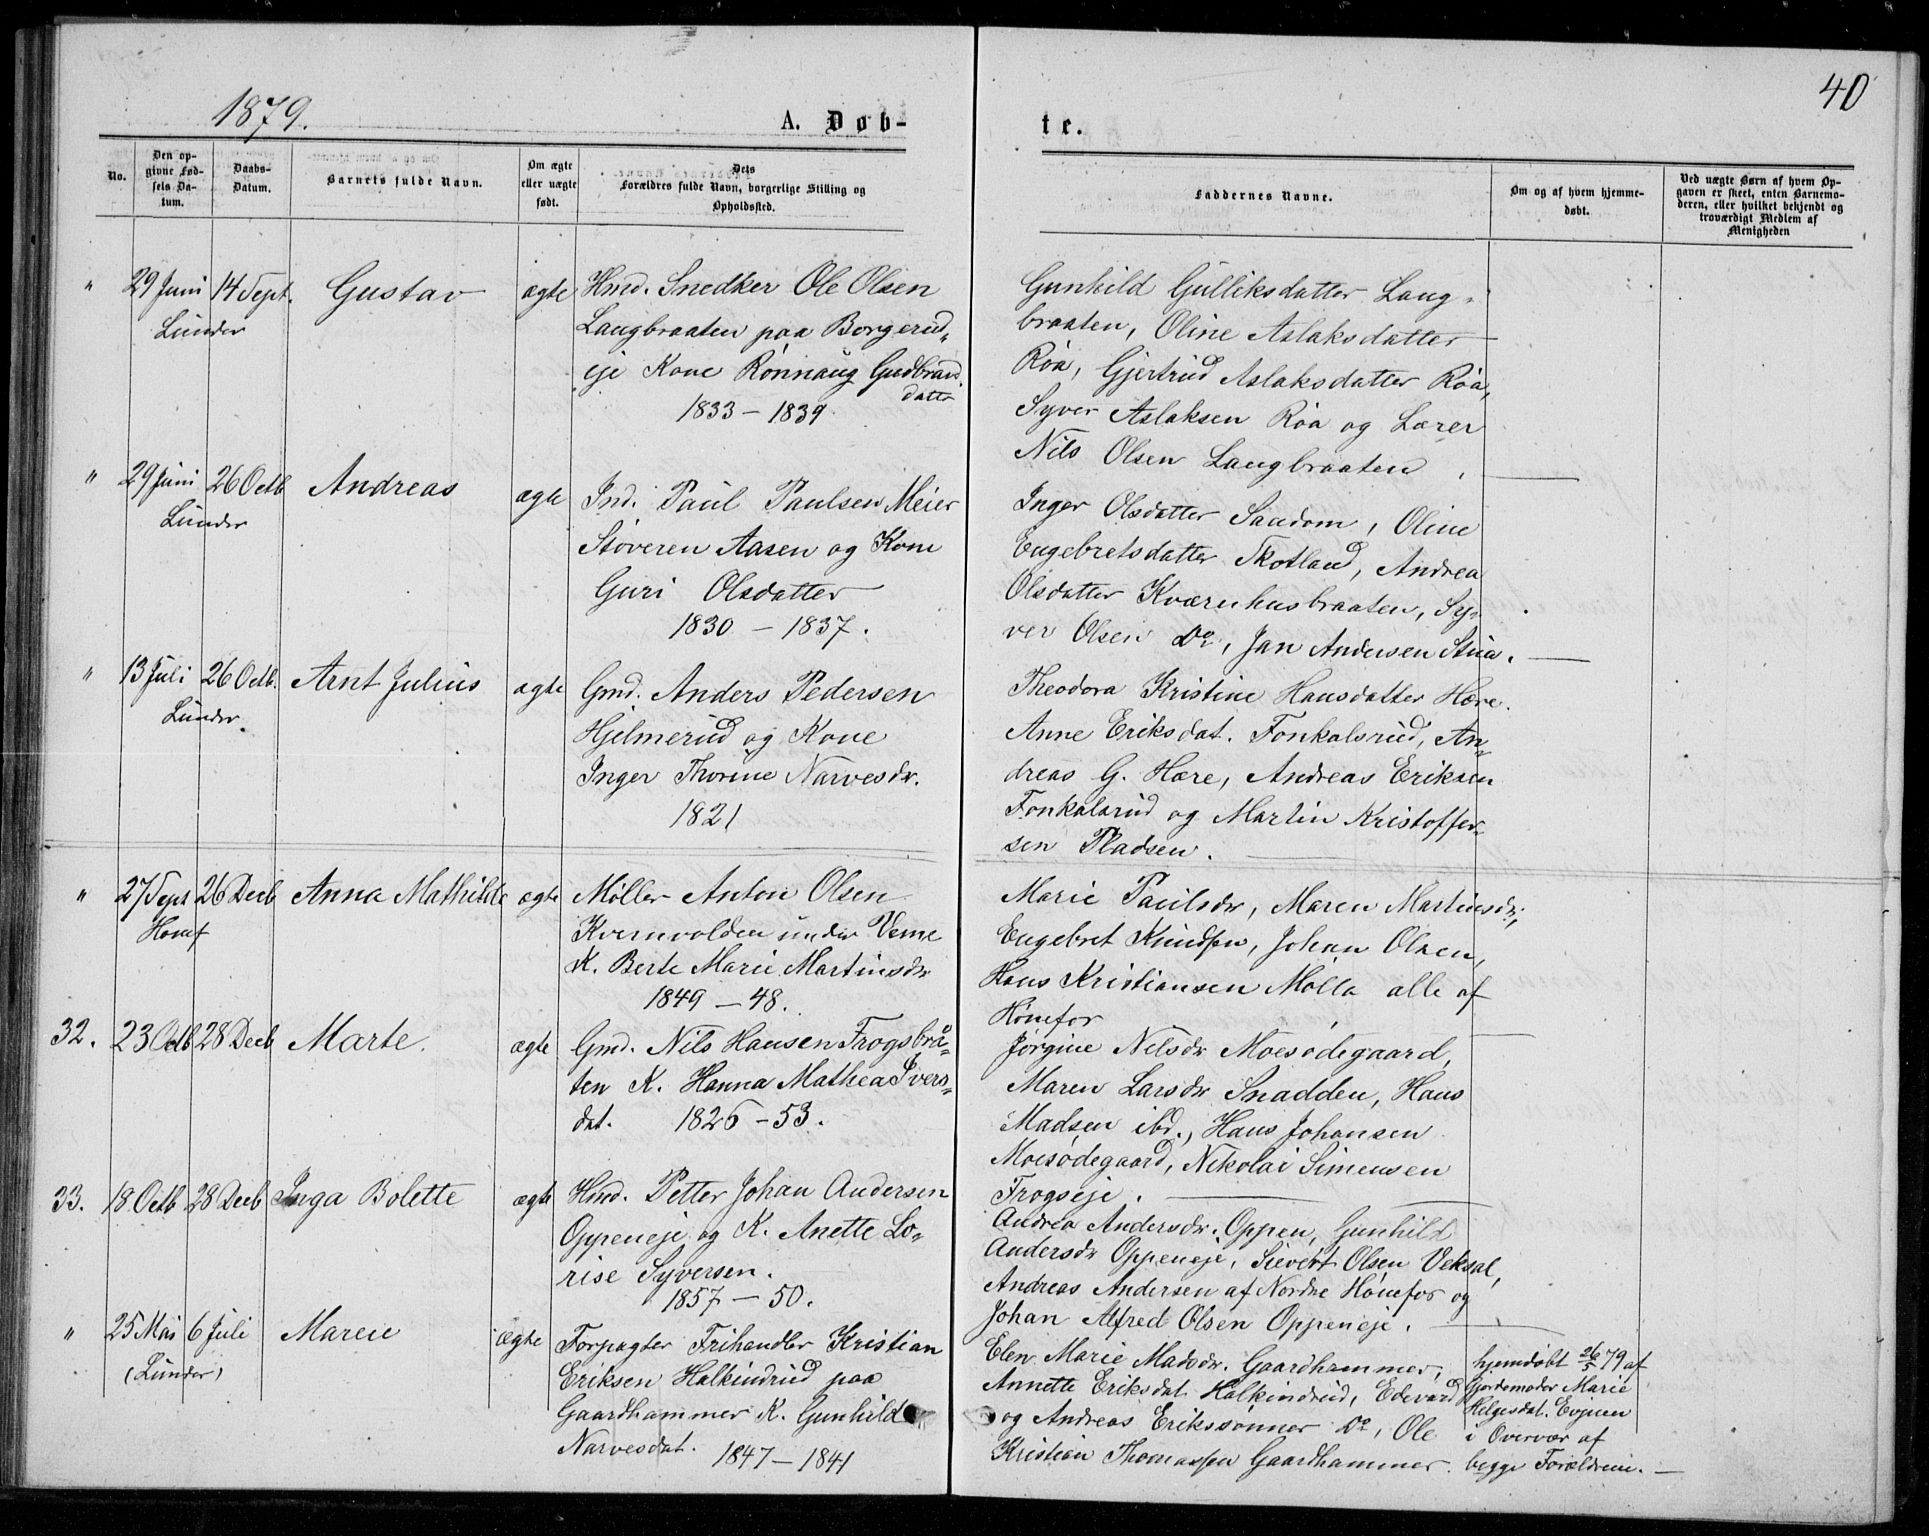 1879.
A. Døb-
te.
40
No.
Den op-
givne Fød-
sels Da-
tum.
Daabs-
Datum.
Barnets fulde Navn.
Om ægte
eller uægte
født.
Dets
Forældres fulde Navn, borgerlige Stilling og
Opholdssted.
Faddernes Navne.
Om og af hvem hjemme-
døbt.
Ved uægte Børn af hvem Op-
gaven er skeet, enten Barnemo-
deren, eller hvilket bekjendt og
troværdigt Medlem af
Menigheden
" 29 Juni 14 Sept. Gustav ægte
Lunder
Hmd. Snedker Ole Olsen
Langbraaten paa Borgerud-
eje Kone Rønnaug Gudbrands
datter
1833 - 1839.
Gunhild Gulliksdatter Lang-
braaten, Oline Aslaksdatter
Røa, Gjertrud Aslaksdatter Røa,
Syver Aslaksen Røa og Lærer
Nils Olsen Langbraaten
" 29 Juni 26 Octb Andreas ægte
Lunder
Ind. Paul Paulsen Meier
Støveren Aasen og Kone
Guri Olsdatter
1830 - 1837.
Inger Olsdatter Sandom, Oline
Engebretsdatter Skotland, Andrea
Olsdatter Kværnhusbraaten, Sy-
ver Olsen Do, Jan Andersen Stua.
" 13 Juli 26 Octb. Arnt Julius ægte
Lunder.
Gmd. Anders Pedersen
Hjelmerud og Kone
Inger Thorine Narvesdr.
1821
Theodora Kristine Hansdatter Hære.
Anne Eriksdat. Fonkalsrud, An-
dreas G. Hære, Andreas Eriksen
Fonkalsrud og Martin Kristoffer-
sen Pladsen.
" 27 Sept 26 Decb Anna Mathilde ægte
Honef
Møller Anton Olsen
Kvernvolden under Veme
K. Berte Marie Martinsdr
1849 - 48.
Marie Paulsdr, Maren Martinsdr,
Engebret Knudsen, Johan Olsen,
Hans Kristiansen Mølla alle af
Hønefos
32. 23 Octb 28 Decb Marte. ægte
Gmd. Nils Hansen Frogsbrå-
ten K. Hanna Mathea Ivers-
dat. 1826 - 53.
Jørgine Nilsdr Moesødegaard,
Maren Larsdr Snadden, Hans
Madsen ibd., Hans Johansen
Moesødegaard, Nikolai Simensen
Frogseje.
33. 18 Octb. 28 Decb Inga Bolette ægte
Hmd. Petter Johan Andersen
Oppeneje og K. Anette Lo-
rise Syversen.
1857 - 50.
Andrea Andersdr. Oppen, Gunhild
Andersdr Oppeneje, Sievert Olsen Veksal,
Andreas Andersen af Nordre Hønefos og
Johan Alfred Olsen Oppeneje.
" 25 Mai 6 Juli Mareie ægte
(Lunder)
Forpagter Frihandler Kristian
Eriksen Halkindrud paa
Gaardhammer K. Gunhild
Narvesdat. 1847 - 1841
Elen Marie Madsdr. Gaardhammer,
Annette Eriksdat. Halkindrud, Edevard
og Andreas Erikssønner Do, Ole
Kristian Thomassen Gaardhammer.
hjemdøbt 26/5 79 af
Gjordemoder Marie
Helgesdat. Evjuen
i Overvær af
begge Forældrene.